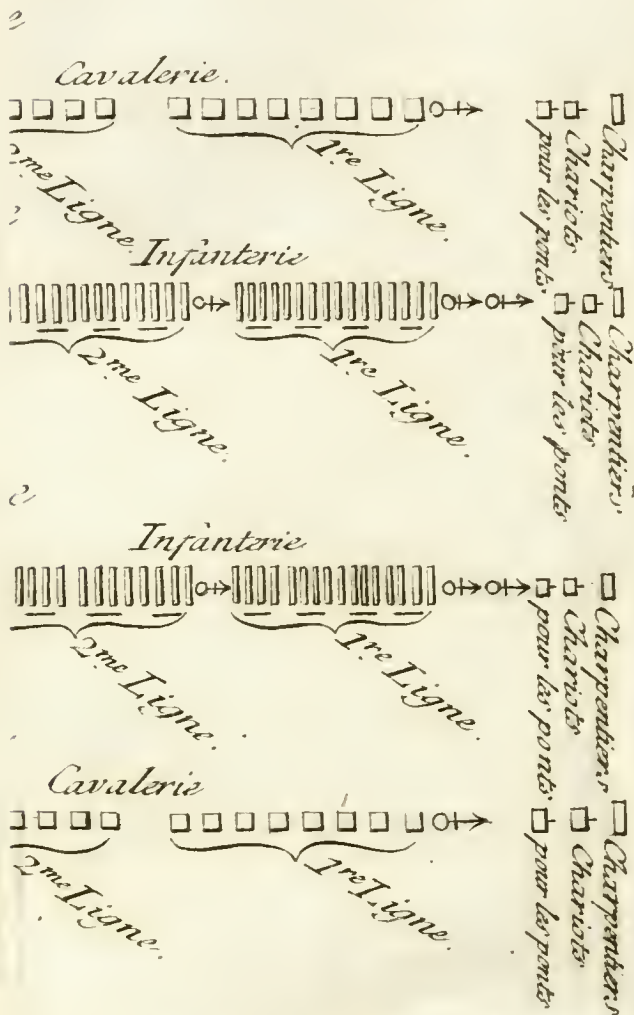 Cavalerie.
2me Ligne.
1re Ligne.
Charpentiers
Chariots
pour les ponts
Infanterie
2me Ligne.
1re Ligne.
Charpentiers
Chariots
pour les ponts
Infanterie
2me Ligne.
1re Ligne.
Charpentiers
Chariots
pour les ponts
Cavalerie
2me Ligne.
1re Ligne.
Charpentiers
Chariots
pour les ponts